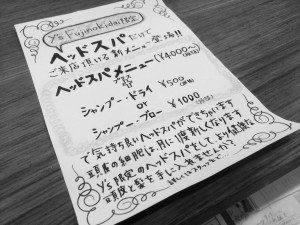 Y's Fujinokidai限定
ヘッドスパだけで
ご来店頂ける新メニュー登場!!
ヘッドスパメニュー(¥4000〜)
シャンプー・ドライ ¥500
or
シャンプー・ブロー ¥1000
で気持ち良いヘッドスパができちゃいます
頭皮の細胞は、月に1度新しくなります
Y's限定のヘッドスパをして、より健康な
頭皮と髪を手に入れませんか?